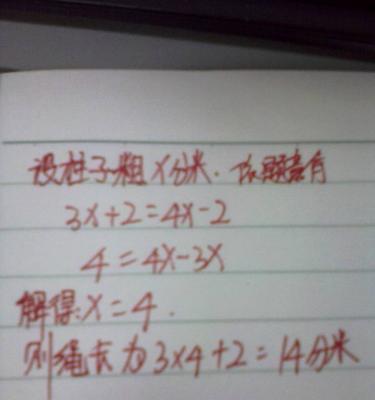 设柱子粗X分米. 依题意有
3X+2=4X-2
4=4X-3X
解得:X=4.
则绳长为3×4+2=14分米